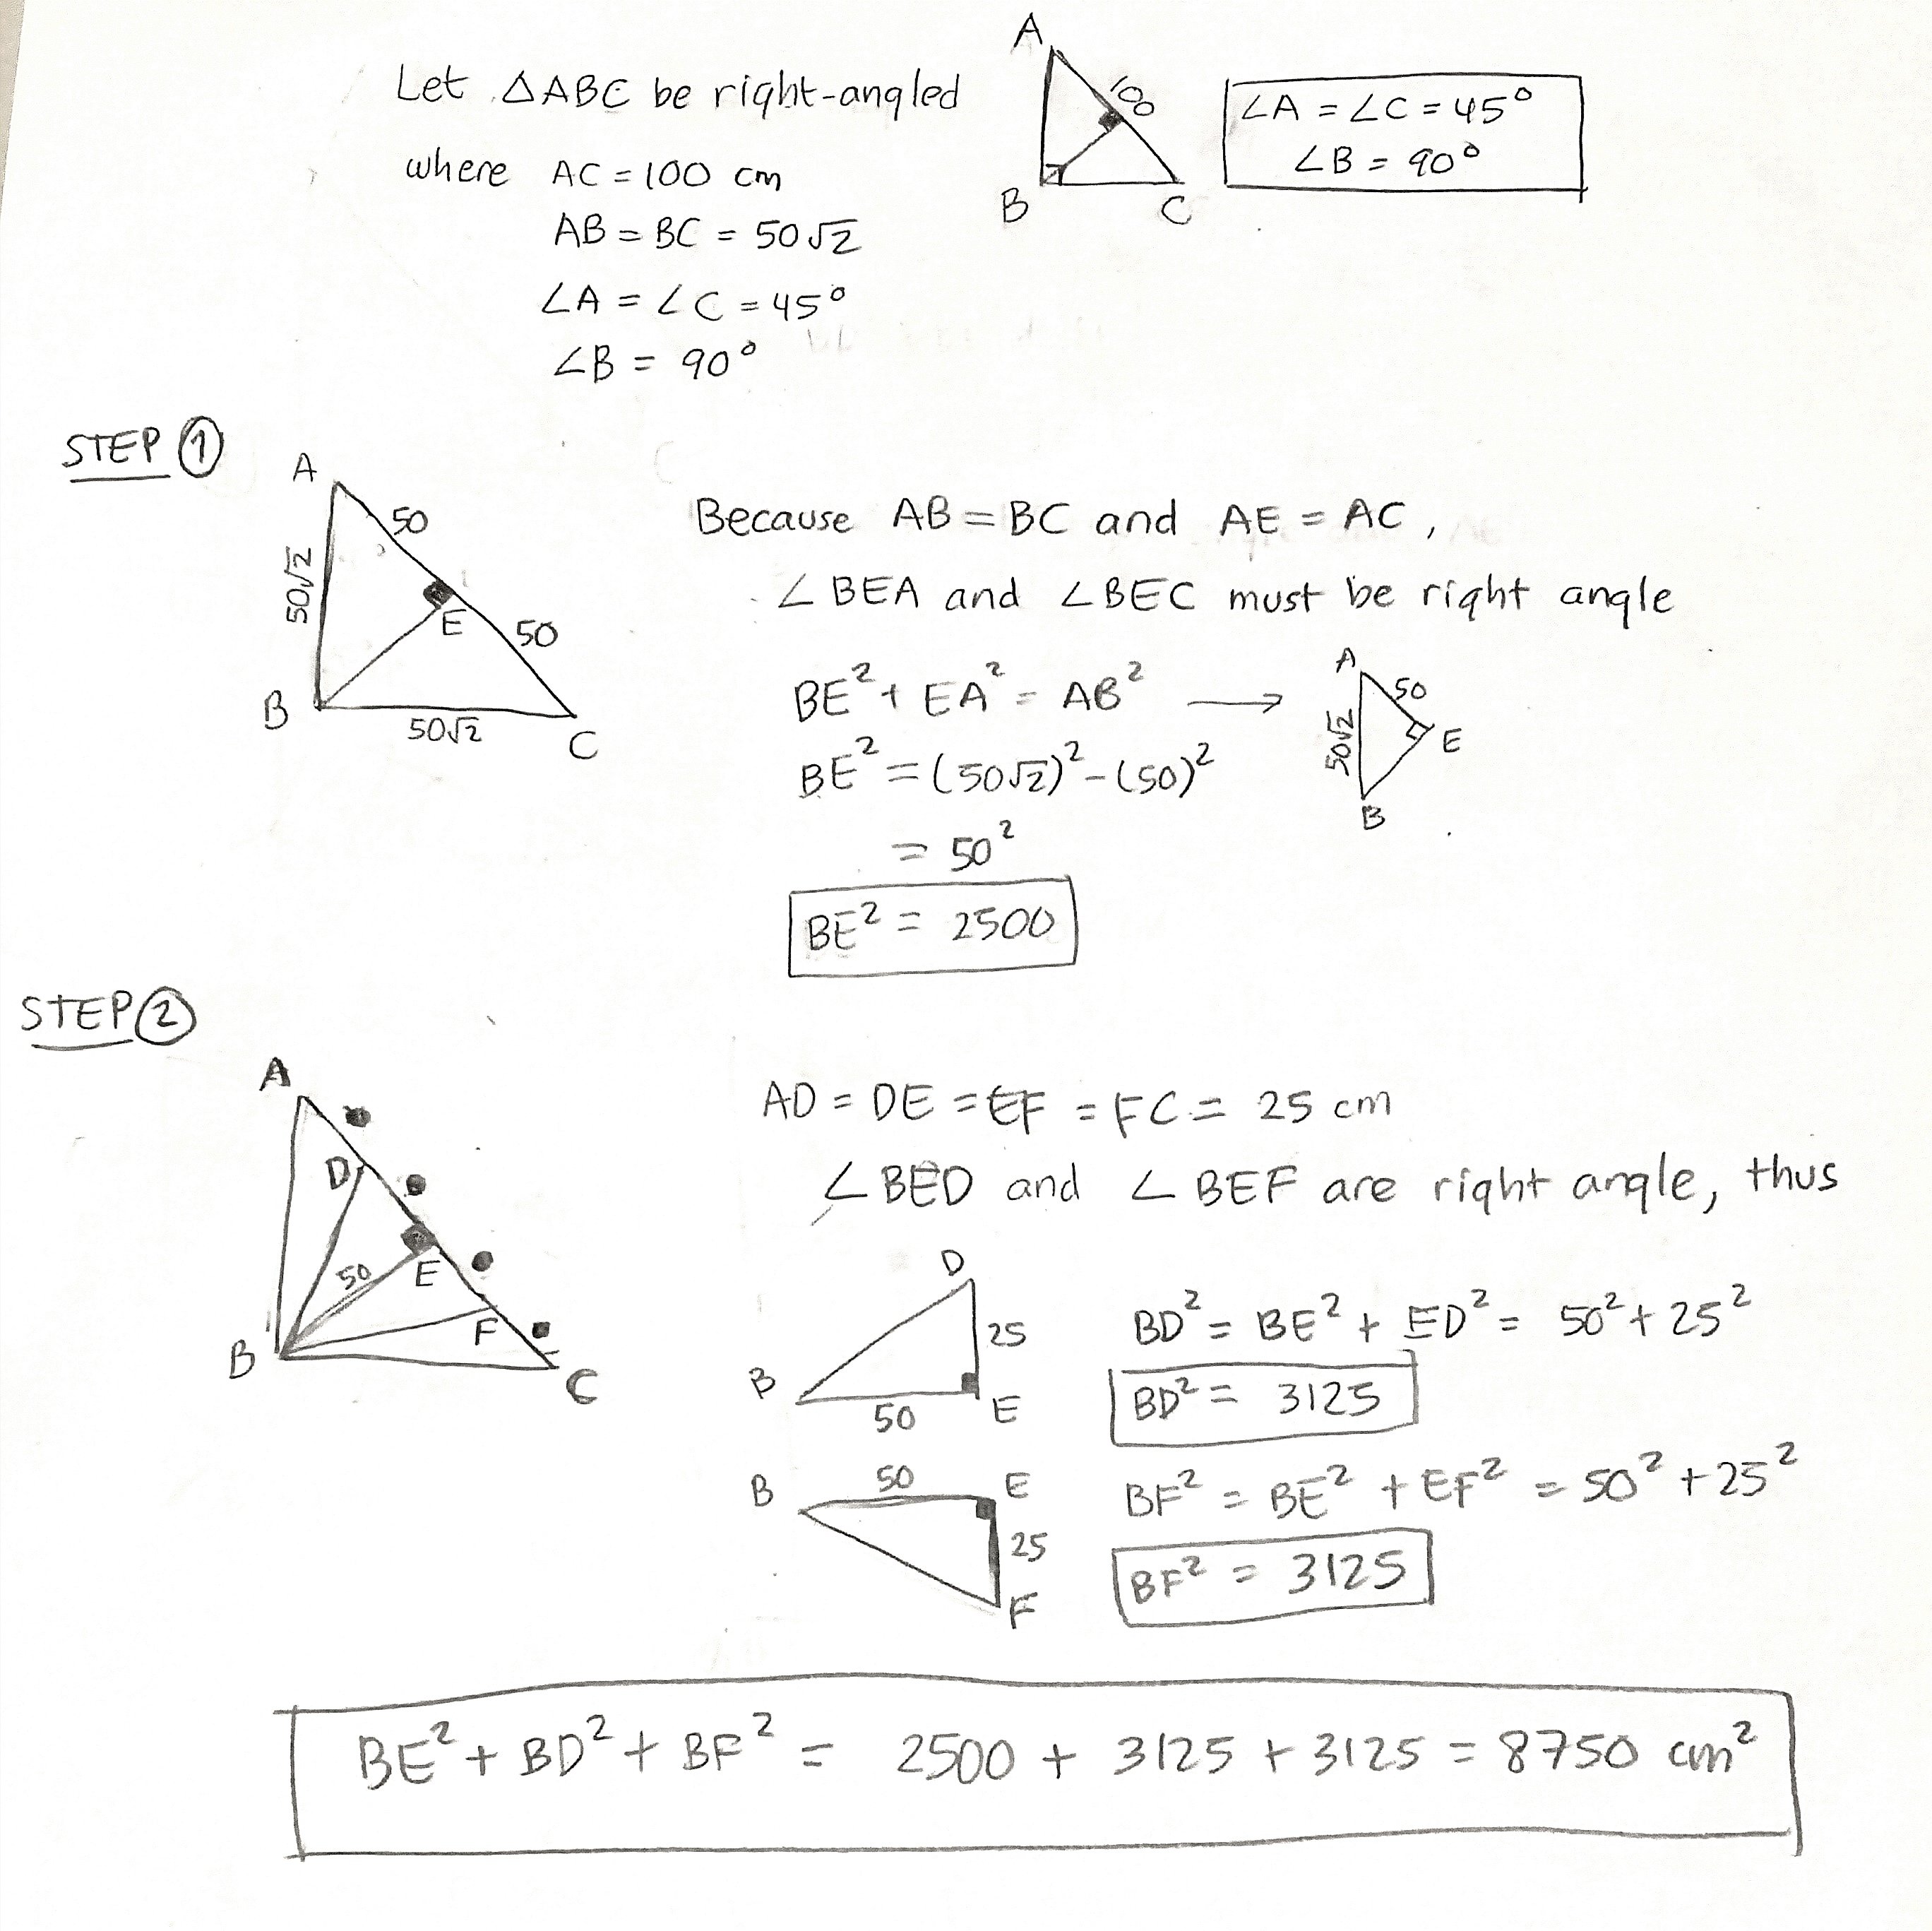 Let △ABC be right-angled
where AC = 100 cm
AB = BC = 50√2
∠A = ∠C = 45°
∠B = 90°
A
100
B
C
∠A = ∠C = 45°
∠B = 90°
STEP ①
A
50
50√2
E
50
B
50√2
C
Because AB = BC and AE = AC,
∠BEA and ∠BEC must be right angle
BE² + EA² = AB² →
A
50
50√2
E
B
BE² = (50√2)² - (50)²
= 50²
BE² = 2500
STEP ②
A
D
50
E
F
B
C
AD = DE = EF = FC = 25 cm
∠BED and ∠BEF are right angle, thus
D
25
B
50
E
BD² = BE² + ED² = 50² + 25²
BD² = 3125
B
50
E
25
F
BF² = BE² + EF² = 50² + 25²
BF² = 3125
BE² + BD² + BF² = 2500 + 3125 + 3125 = 8750 cm²